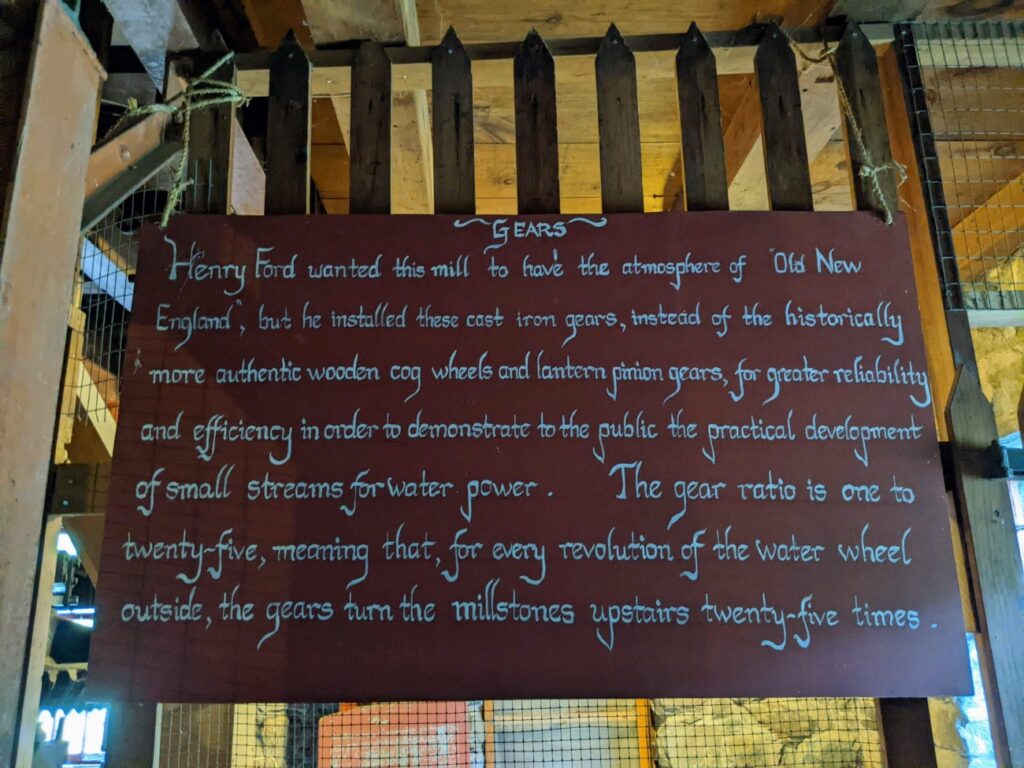 ~ GEARS ~
Henry Ford wanted this mill to have the atmosphere of "Old New
England", but he installed these cast iron gears, instead of the historically
more authentic wooden cog wheels and lantern pinion gears, for greater reliability
and efficiency in order to demonstrate to the public the practical development
of small streams for water power. The gear ratio is one to
twenty-five, meaning that, for every revolution of the water wheel
outside, the gears turn the millstones upstairs twenty-five times.